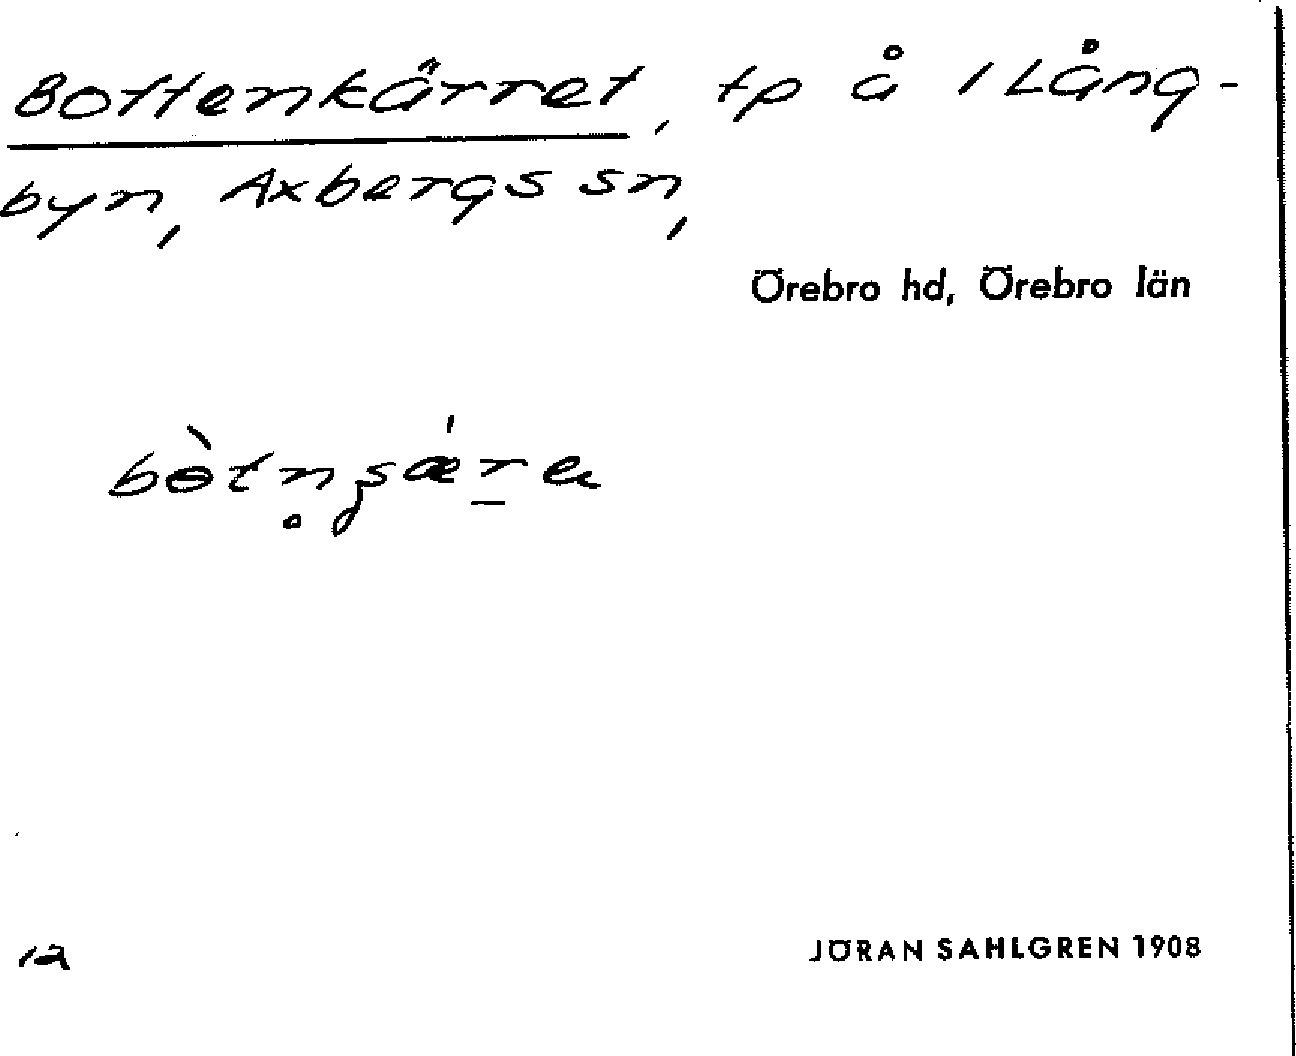 Bottenkärret, tp å i Lång-
byn, Axbergs sn,
Örebro hd, Örebro län
12
JÖRAN SAHLGREN 1908